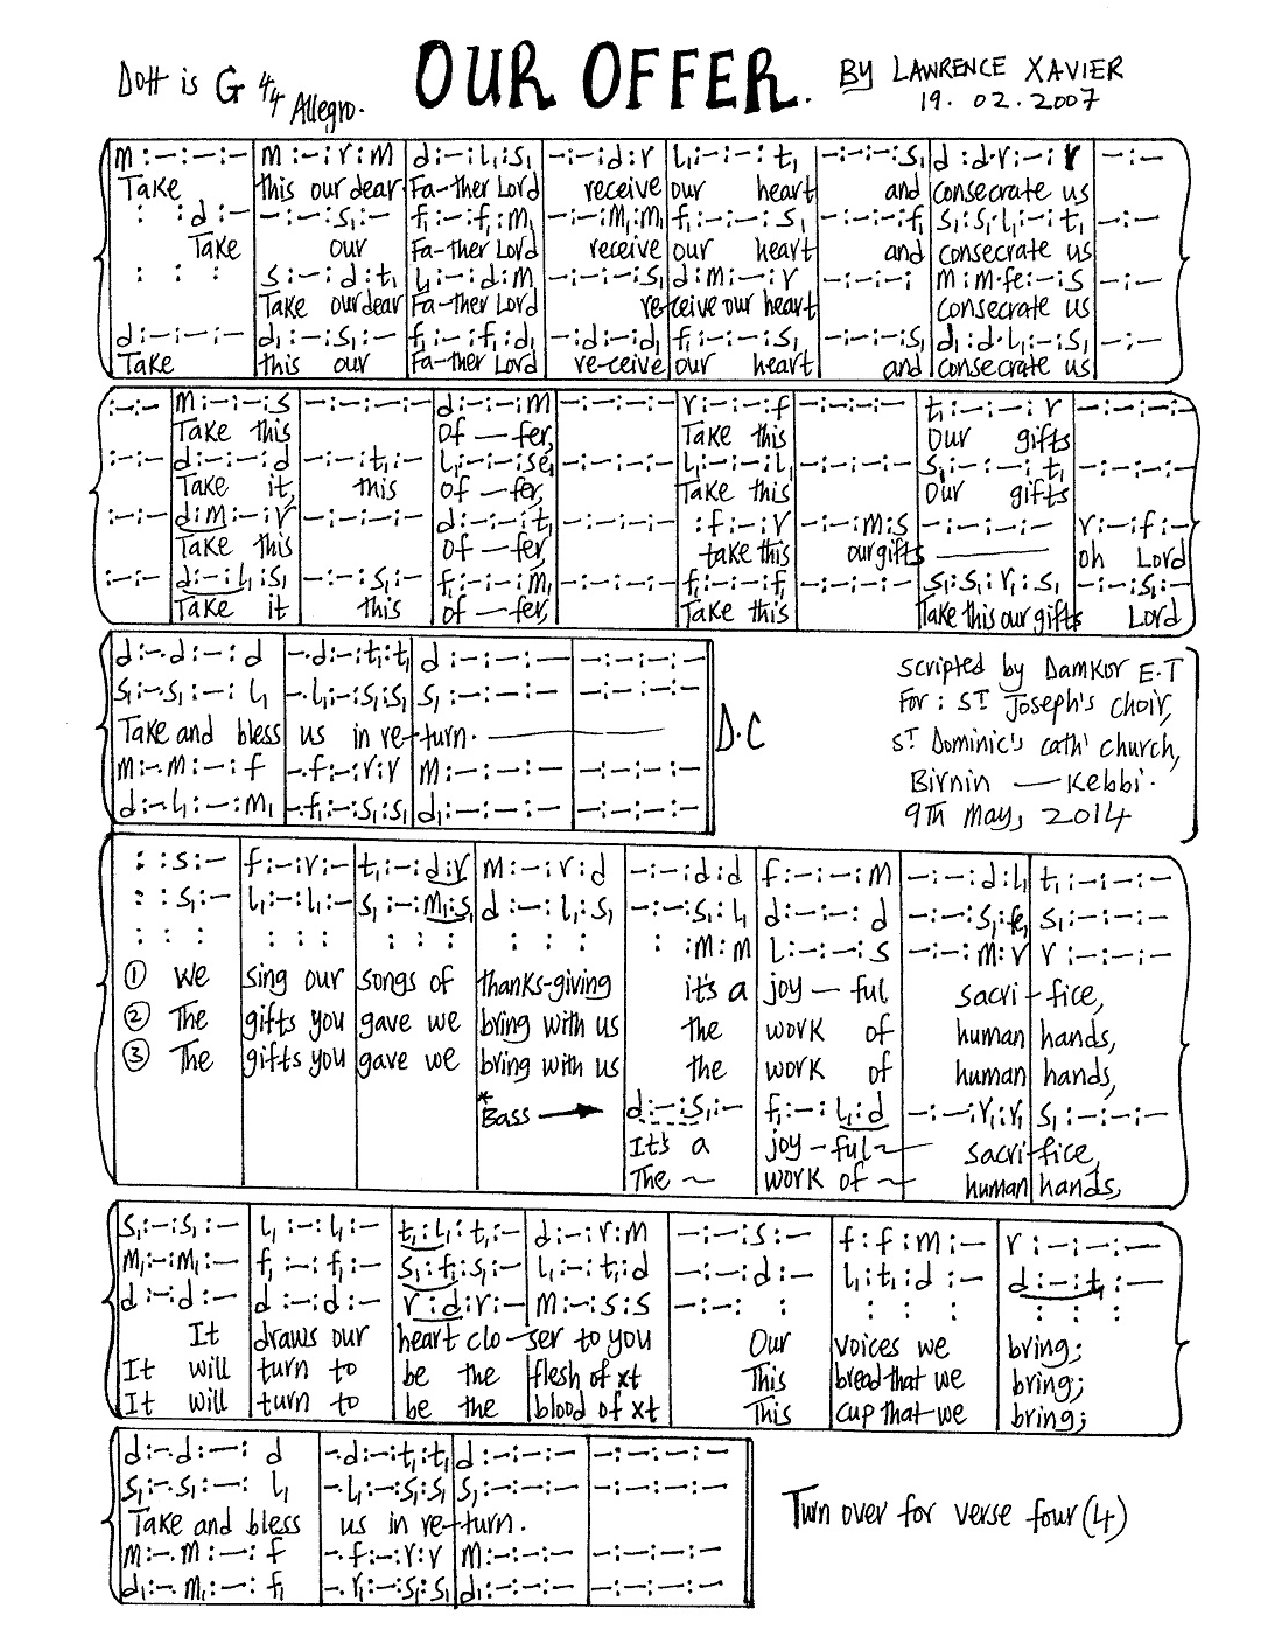 DOH is G 4/4 Allegro.
OUR OFFER.
BY LAWRENCE XAVIER
19. 02. 2007
m :–:–:– | m :–:r:m | d:–:l₁:s₁ | –:–:d:r | l₁:–:–:t₁ | –:–:–:s₁ | d:d.r:–:r | –:–
Take this our dear Fa-ther Lord receive our heart and consecrate us
: :d:– | –:–:s₁:– | f₁:–:f₁:m₁ | –:–:m₁:m₁ | f₁:–:–:s₁ | –:–:–:f₁ | s₁:s₁.l₁:–:t₁ | –:–
Take our Fa-ther Lord receive our heart and consecrate us
: : : | s:–:d:t₁ | l₁:–:d:m | –:–:–:s₁ | d:m:–:r | –:–:–: | m:m.fe:–:s | –:–
Take our dear Fa-ther Lord re-ceive our heart consecrate us
d:–:–:– | d₁:–:s₁:– | f₁:–:f₁:d₁ | –:d₁:–:d₁ | f₁:–:–:s₁ | –:–:–:s₁ | d₁:d.l₁:–:s₁ | –:–
Take this our Fa-ther Lord re-ceive our heart and consecrate us
:–:– | m:–:–:s | –:–:–:– | d:–:–:m | –:–:–:– | r:–:–:f | –:–:–:– | t₁:–:–:r | –:–:–:–
Take this Of — fer, Take this Our gifts
:–:– | d:–:–:d | –:–:t₁:– | l₁:–:–:se₁ | –:–:–:– | l₁:–:–:l₁ | –:–:–:– | s₁:–:–:t₁ | –:–:–:–
Take it, this of — fer, Take this Our gifts
:–:– | d:m:–:r | –:–:–:– | d:–:–:t₁ | –:–:–:– | :f:–:r | –:–:m:s | –:–:–:– | r:–:f:–
Take this of — fer, take this our gifts ——— oh Lord
:–:– | d:–:l₁:s₁ | –:–:s₁:– | f₁:–:–:m₁ | –:–:–:– | f₁:–:–:f₁ | –:–:–:– | s₁:s₁:r₁:s₁ | –:–:s₁:–
Take it this of — fer, Take this Take this our gifts Lord
d:–.d:–:d | –.d:–:t₁:t₁ | d:–:–:– | –:–:–:–
s₁:–.s₁:–:l₁ | –.l₁:–:s₁:s₁ | s₁:–:–:– | –:–:–:–
Take and bless us in re-turn. ———
m:–.m:–:f | –.f:–:r:r | m:–:–:– | –:–:–:–
d:–.l₁:–:m₁ | –.f₁:–:s₁:s₁ | d₁:–:–:– | –:–:–:–
D.C
Scripted by Damkor E.T
For: ST. Joseph's choir,
ST. Dominic's cath' church,
Birnin — Kebbi.
9TH May, 2014
: :s:– | f:–:r:– | t₁:–:d:r | m:–:r:d | –:–:d:d | f:–:–:m | –:–:d:l₁ | t₁:–:–:–
: :s₁:– | l₁:–:l₁:– | s₁:–:m₁:s₁ | d:–:l₁:s₁ | –:–:s₁:l₁ | d:–:–:d | –:–:s₁:fe₁ | s₁:–:–:–
: : : | : : : | : : : | : : : | : :m:m | l:–:–:s | –:–:m:r | r:–:–:–
① We sing our songs of thanks-giving it's a joy — ful sacri - fice,
② The gifts you gave we bring with us the work of human hands,
③ The gifts you gave we bring with us the work of human hands,
* Bass → d:–:s₁:– | f₁:–:l₁:d | –:–:r₁:r₁ | s₁:–:–:–
It's a joy - ful ~ sacri-fice,
The ~ work of ~ human hands,
s₁:–:s₁:– | l₁:–:l₁:– | t₁:l₁:t₁:– | d:–:r:m | –:–:s:– | f:f:m:– | r:–:–:–
m₁:–:m₁:– | f₁:–:f₁:– | s₁:f₁:s₁:– | l₁:–:t₁:d | –:–:d:– | l₁:t₁:d:– | d:–:t₁:–
d:–:d:– | d:–:d:– | r:d:r:– | m:–:s:s | –:–: : | : : : | : : :
It draws our heart clo-ser to you Our voices we bring;
It will turn to be the flesh of xt This bread that we bring;
It will turn to be the blood of xt This cup that we bring;
d:–.d:–:d | –.d:–:t₁:t₁ | d:–:–:– | –:–:–:–
s₁:–.s₁:–:l₁ | –.l₁:–:s₁:s₁ | s₁:–:–:– | –:–:–:–
Take and bless us in re-turn.
m:–.m:–:f | –.f:–:r:r | m:–:–:– | –:–:–:–
d₁:–.m₁:–:f₁ | –.r₁:–:s₁:s₁ | d₁:–:–:– | –:–:–:–
Turn over for verse four (4)